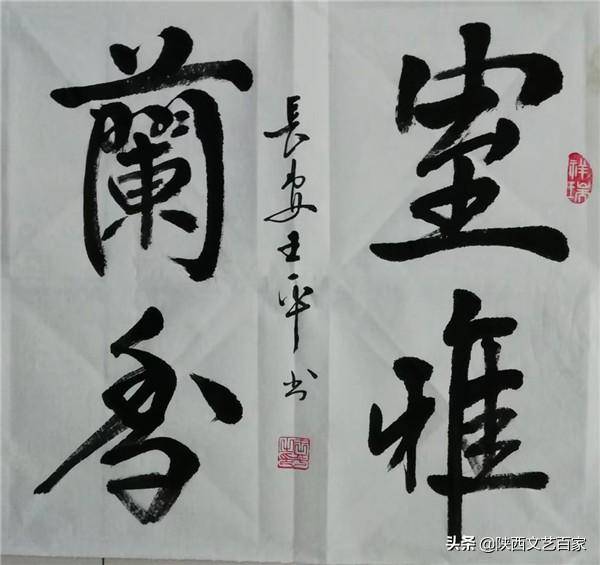 室雅
蘭香
長安王平书
祥瑞
头条 @陕西文艺百家